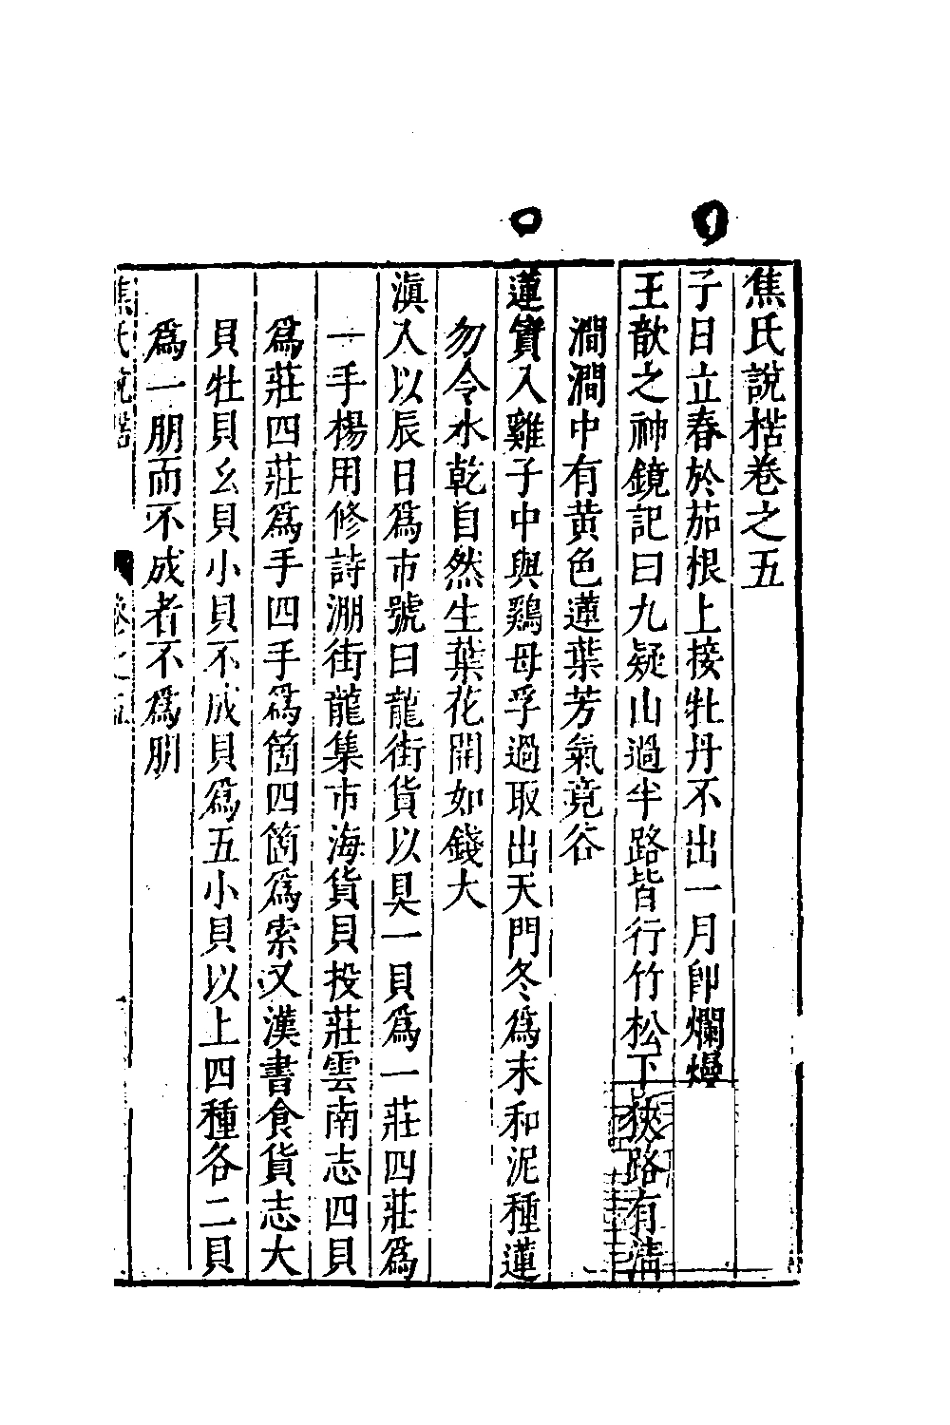 焦氏說楛卷之五
子日立春於茄根上接牡丹不出一月卽爛熳
王歆之神鏡記曰九疑山過半路皆行竹松下狹路有清
澗澗中有黄色蓮葉芳氣竟谷
蓮實入雞子中與鷄母孚過取出天門冬爲末和泥種蓮
勿令水乾自然生葉花開如錢大
滇人以辰日爲市號曰龍街貨以具一貝爲一莊四莊爲
一手楊用修詩淜街龍集市海貨貝投莊雲南志四貝
爲莊四莊爲手四手爲箇四箇爲索又漢書食貨志大
貝牡貝幺貝小貝不成貝爲五小貝以上四種各二貝
爲一朋而不成者不爲朋
焦氏說楛
卷之五